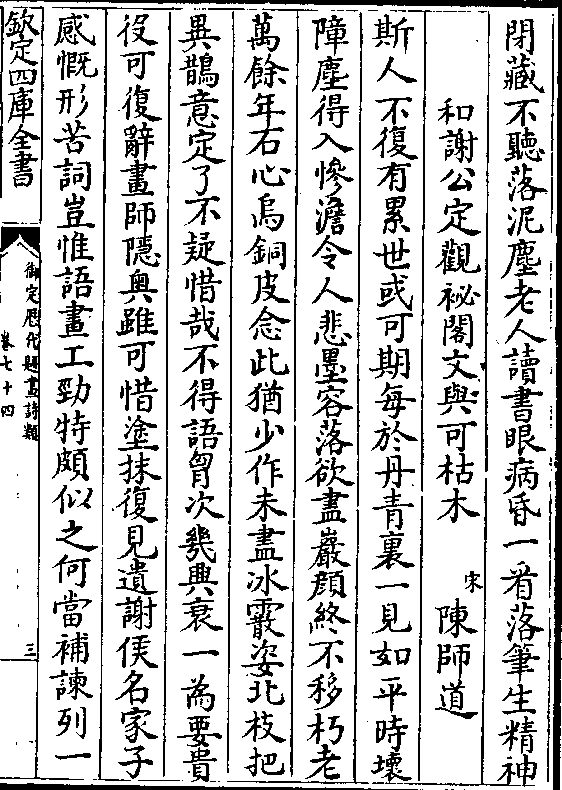 閉藏不聽落泥塵老人讀書眼病昏一看落筆生精神
和謝公定觀祕閣文與可枯木 宋 陳師道
斯人不復有累世或可期每於丹青裏一見如平時壞
障塵得入慘澹令人悲墨容落欲盡巖顔終不移朽老
萬餘年石心烏銅皮念此猶少作未盡冰霰姿北枝把
異鵲意定了不疑惜哉不得語胷次幾興衰一為要貴
役可復辭畫師隱奥雖可惜塗抹復見遺謝侯名家子
感慨形苦詞豈惟語畫工勁特頗似之何當補諫列一
欽定四庫全書
御定歷代題畫詩類
卷七十四
三